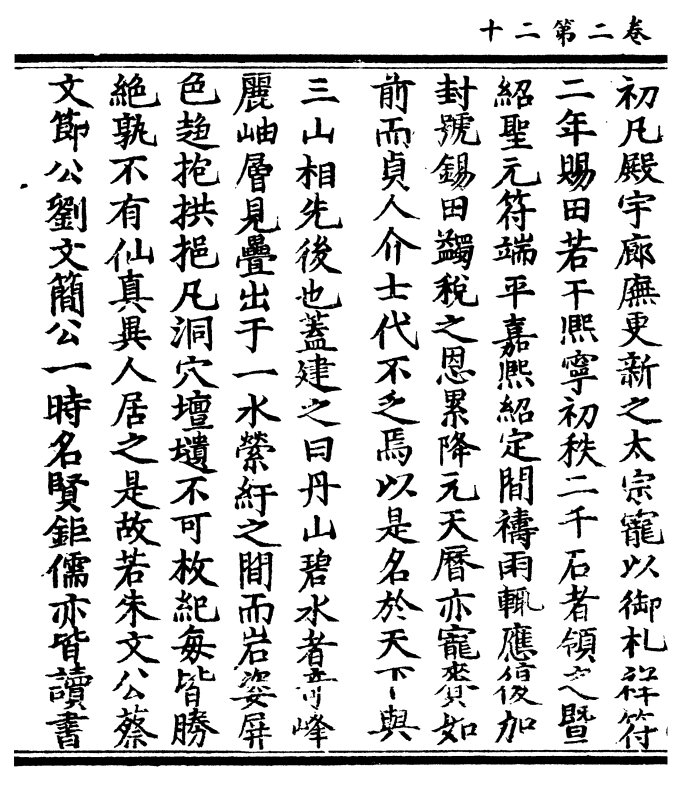 卷二第二十
初凡殿宇廊廡更新之太宗寵以御札祥符
二年賜田若干熙寧初秩二千石者領之暨
紹聖元符端平嘉熙紹定間禱雨輒應復加
封號錫田蠲稅之恩累降元天曆亦寵賚如
前而貞人介士代不乏焉以是名於天下與
三山相先後也蓋建之曰丹山碧水者奇峰
麗岫層見疊出于一水縈紆之間而岩姿屏
色趨抱拱挹凡洞穴壇墳不可枚紀每皆勝
絶孰不有仙真異人居之是故若朱文公蔡
文節公劉文簡公一時名賢鉅儒亦皆讀書